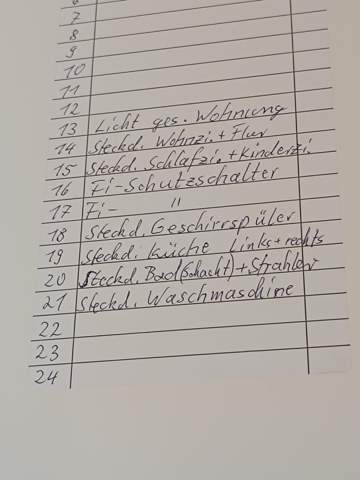 7
8
9
10
11
12
13 Licht ges. Wohnung
14 Steckd. Wohnzi. + Flur
15 Steckd. Schlafzi. + Kinderzi.
16 Fi-Schutzschalter
17 Fi- "
18 Steckd. Geschirrspüler
19 Steckd. Küche Links + rechts
20 Steckd. Bad (Schacht) + Strahler
21 Steckd. Waschmaschine
22
23
24